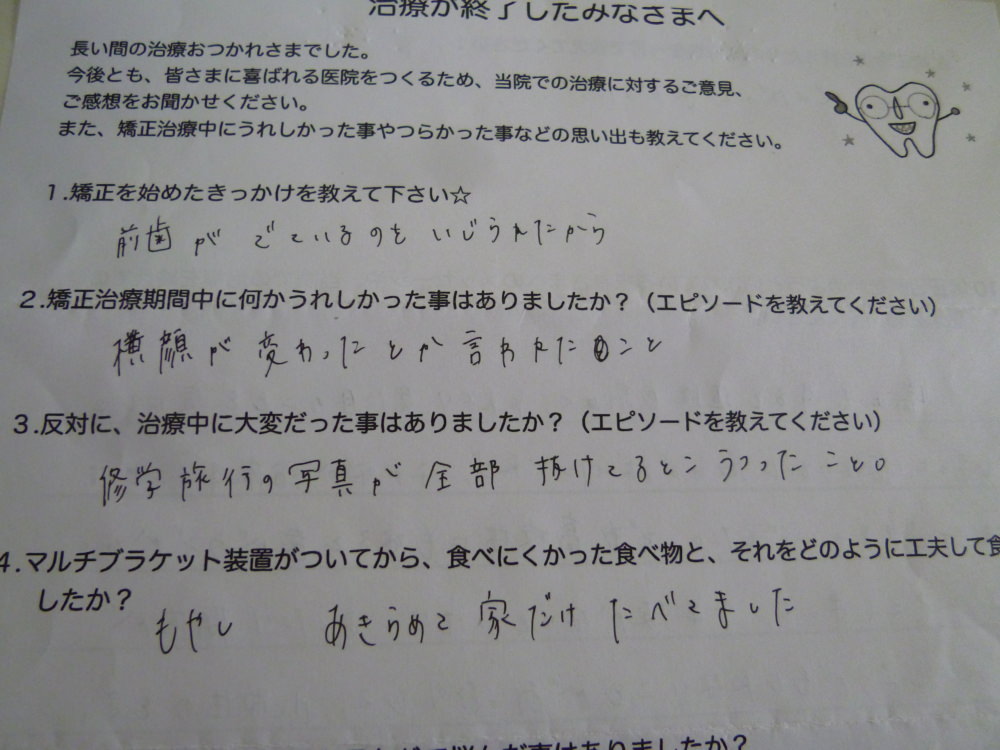 治療が終了したみなさまへ
長い間の治療おつかれさまでした。
今後とも、皆さまに喜ばれる医院をつくるため、当院での治療に対するご意見、
ご感想をお聞かせください。
また、矯正治療中にうれしかった事やつらかった事などの思い出も教えてください。
1.矯正を始めたきっかけを教えて下さい☆
前歯がでているのをいじられたから
2.矯正治療期間中に何かうれしかった事はありましたか？（エピソードを教えてください）
横顔が変わったとか言われたこと
3.反対に、治療中に大変だった事はありましたか？（エピソードを教えてください）
修学旅行の写真が全部抜けてるとこうつったこと。
4.マルチブラケット装置がついてから、食べにくかった食べ物と、それをどのように工夫して食
したか？
もやし あきらめて家だけたべてました
悩んだ事はありましたか？